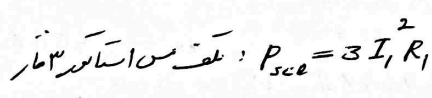 تلف مس استاتور ۳ فاز : P_scl = 3 I₁² R₁